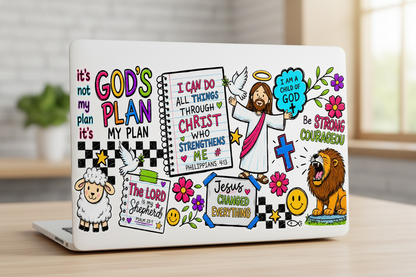 it's
not
my
plan
it's
GOD'S
PLAN
MY PLAN
I CAN DO
ALL THINGS
THROUGH
CHRIST
WHO
STRENGTHENS
ME
PHILIPPIANS 4:13
I AM A
CHILD OF
GOD
Be STRONG
COURAGEOU
THE LORD
is my
Shepherd
PSALM 23:1
Jesus
CHANGED
EVERYTHING